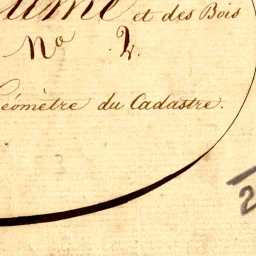 et des Bois
No 2.
Géomètre du Cadastre.
2